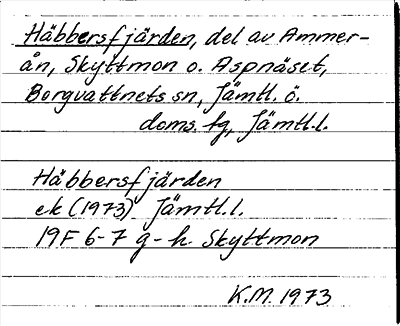 Häbbersfjärden, del av Ammer-
ån, Skyttmon o. Aspnäset,
Borgvattnets sn, Jämtl. ö.
doms. tg, Jämtl.l.
Häbbersfjärden
ek (1973) Jämtl.l.
19F 6-7 g-h. Skyttmon
K.M. 1973